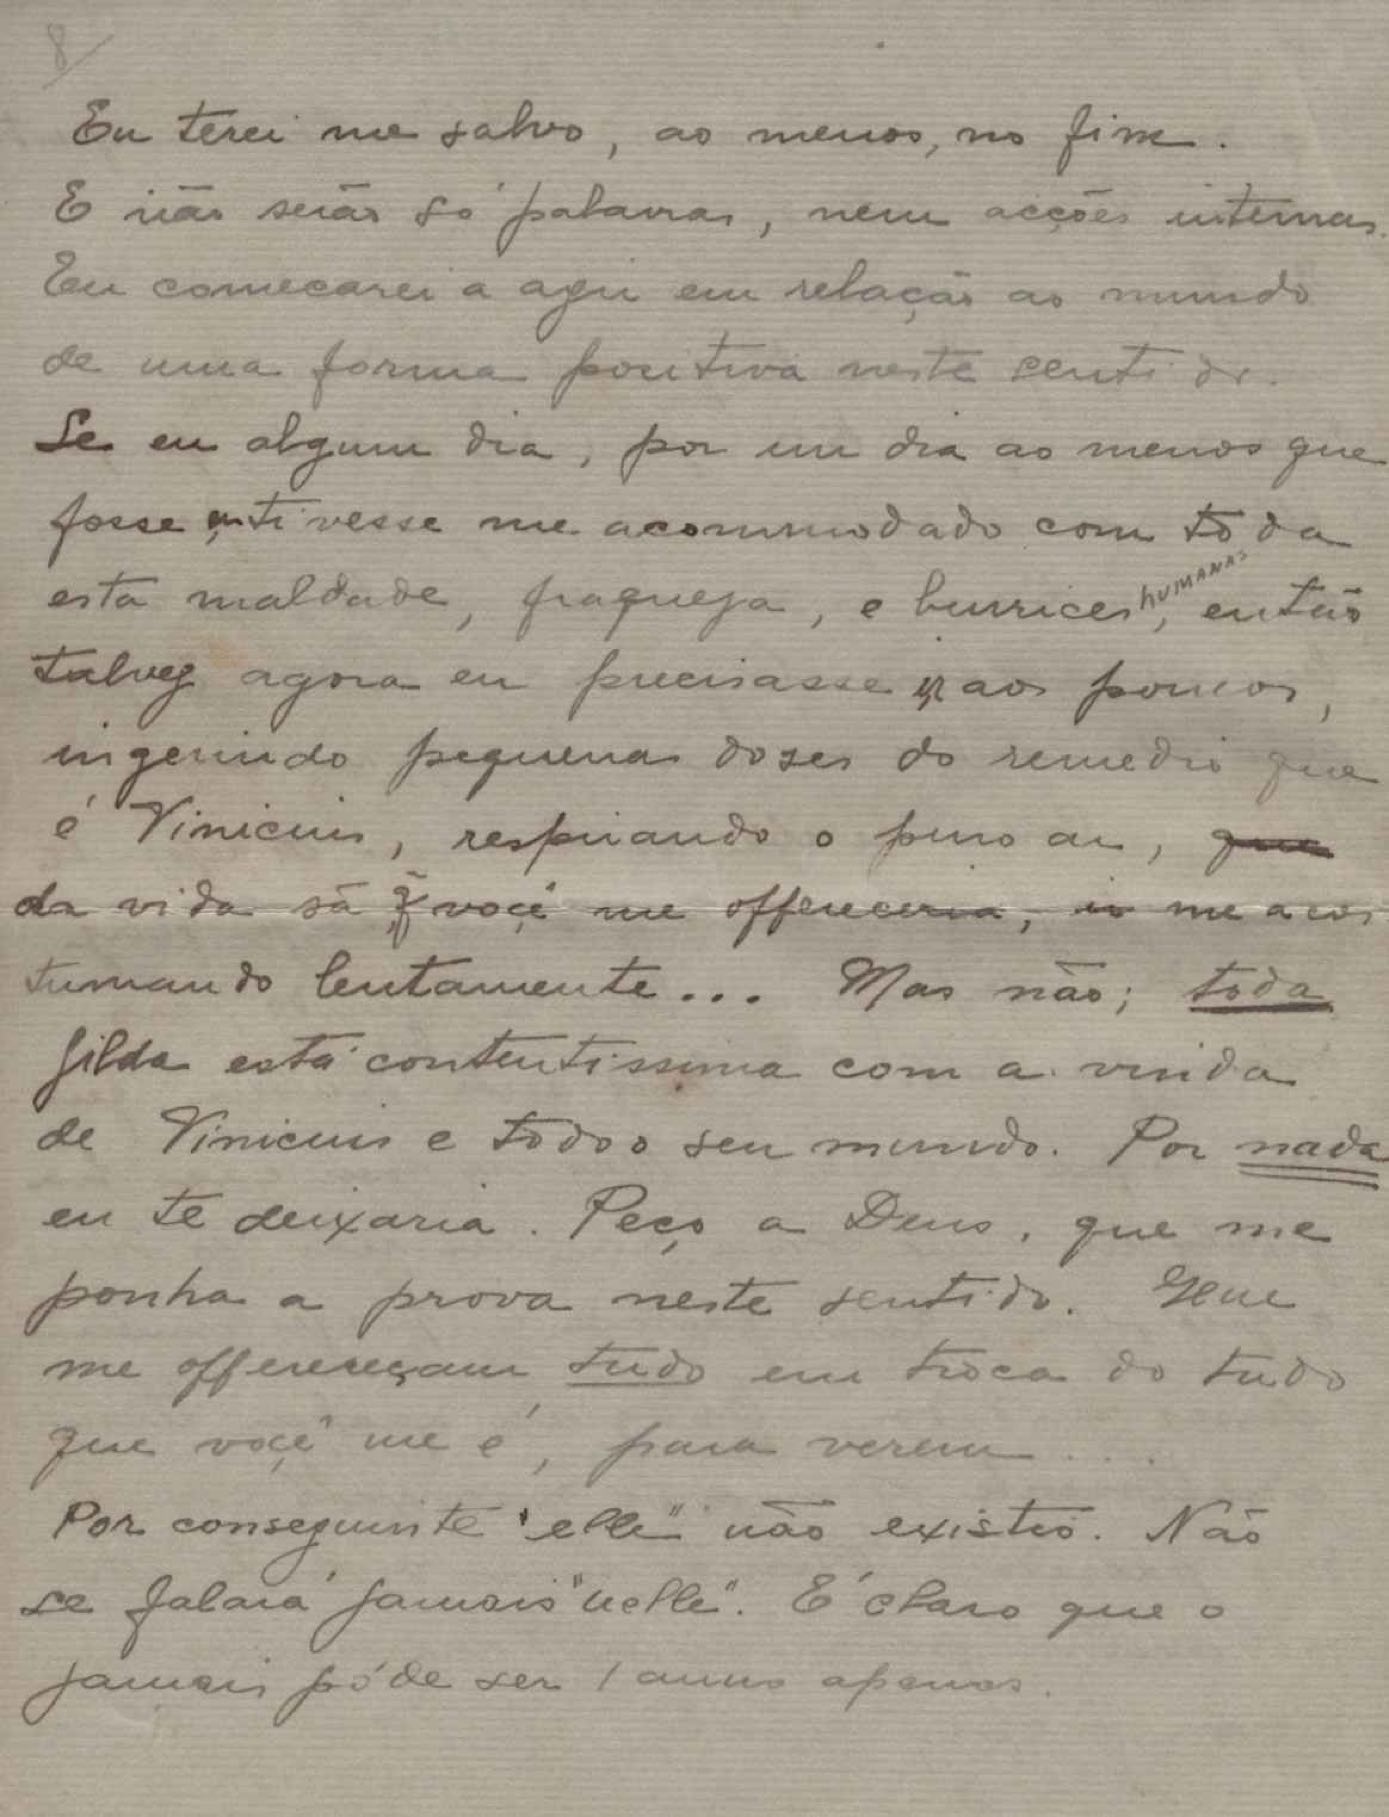 8/
Eu terei me salvo, ao menos, no fim.
E não serão só palavras, nem acções internas.
Eu começarei a agir em relação ao mundo
de uma forma positiva neste sentido.
Se eu algum dia, por um dia ao menos que
fosse, tivesse me acommodado com toda
esta maldade, fraqueza, e burrices humanas, então
talvez agora eu precisasse ir aos poucos,
ingerindo pequenas doses do remedio que
é Vinicius, respirando o puro ar, que
da vida sã q̃ você me offereceria, ir me acos
tumando lentamente... Mas não; toda
Gilda está contentissima com a vinda
de Vinicius e todo o seu mundo. Por nada
eu te deixaria. Peço a Deus, que me
ponha a prova neste sentido. Que
me offereçam tudo em troca do tudo
que você me é, para verem....
Por conseguinte "elle" não existio. Não
se falará jamais "nelle". É claro que o
jamais póde ser 1 anno apenas.